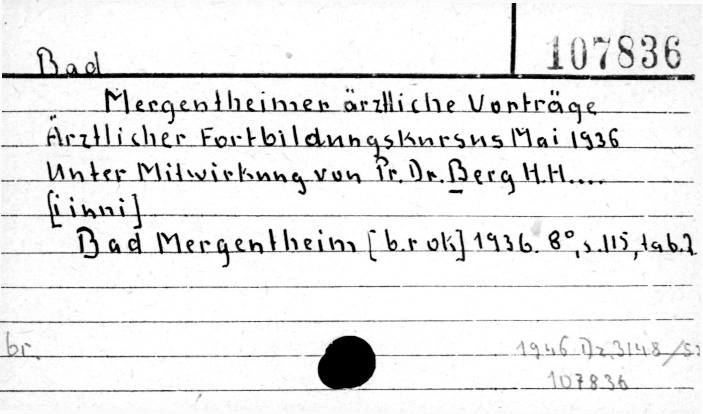 107836
Bad
Mergentheimer ärztliche Vorträge
Ärztlicher Fortbildungskursus Mai 1936
Unter Mitwirkung von Pr. Dr. Berg H.H....
[i inni]
Bad Mergentheim [b.r ok] 1936. 8°, s. 115, tab. 2
br.
1946 Dz. 3148/S2
107836